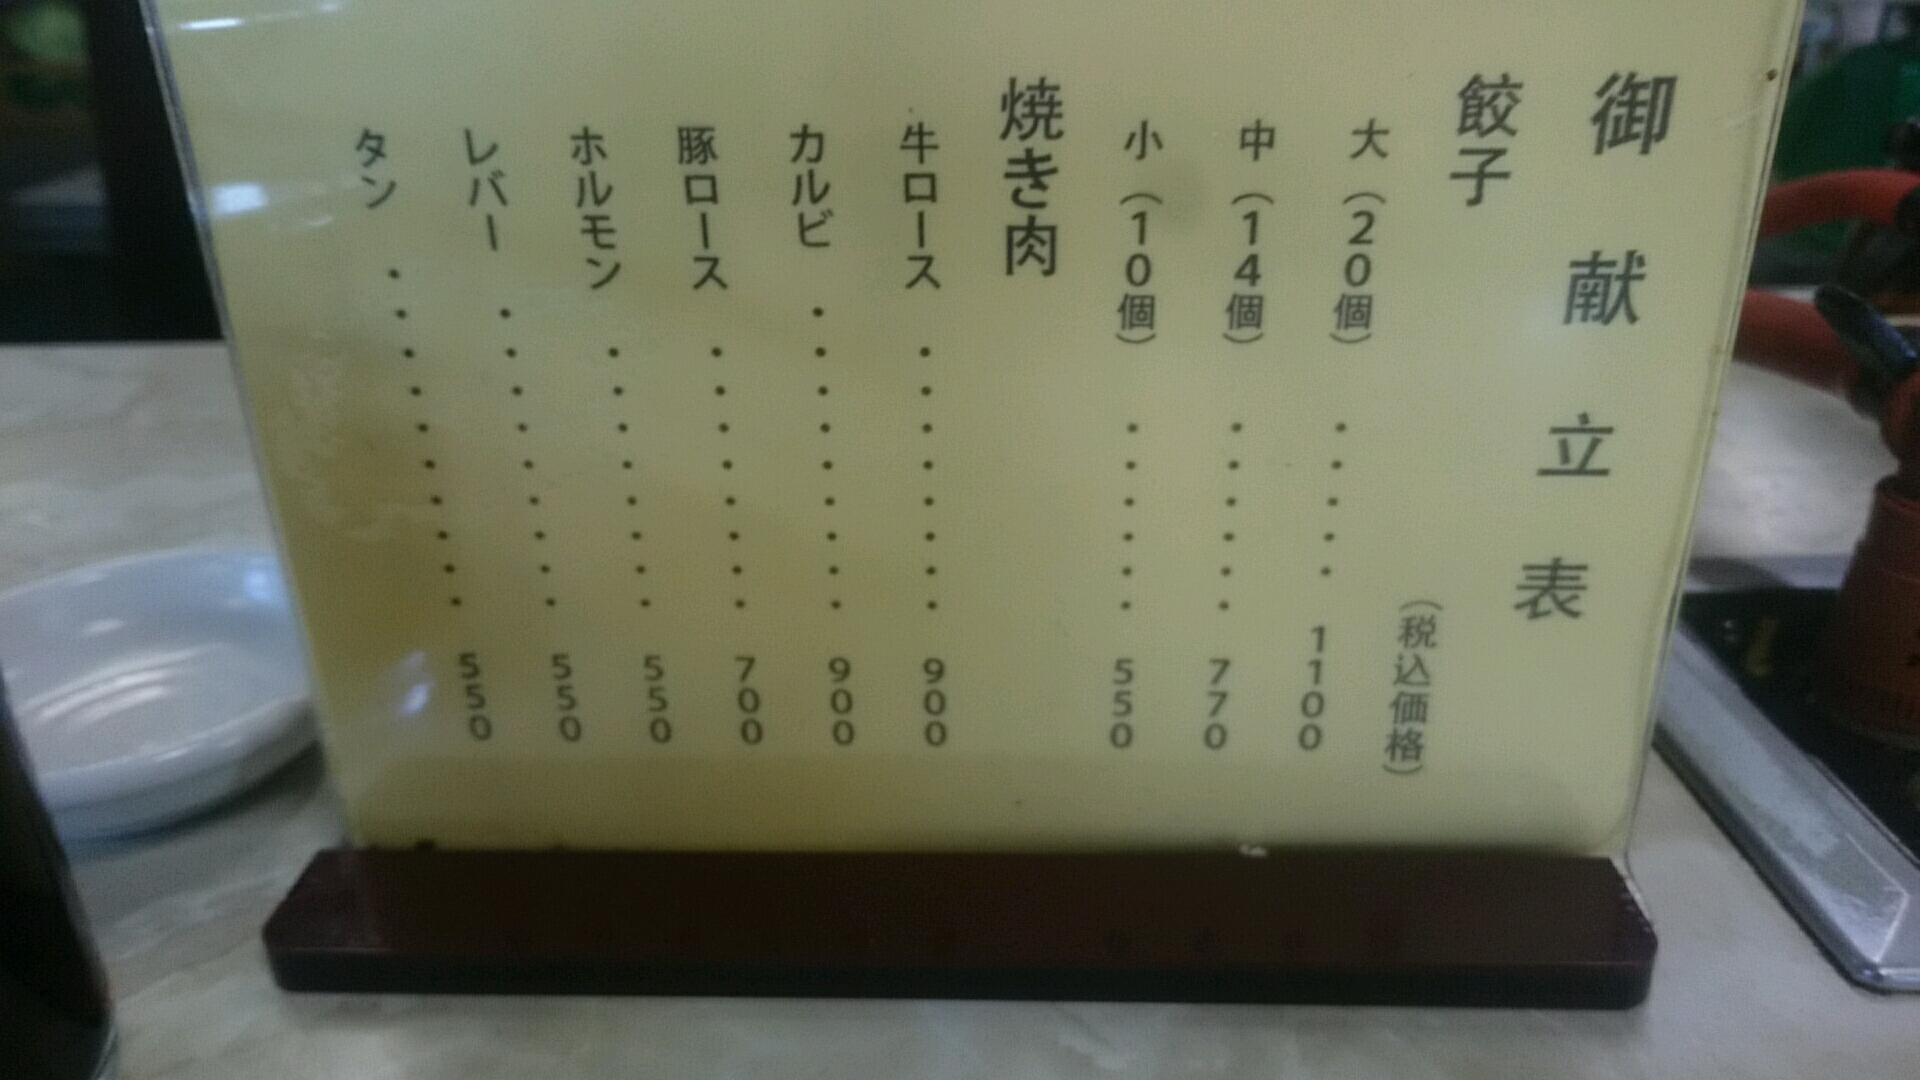 御献立表
餃子
(税込価格)
大(20個)・・・・・1100
中(14個)・・・・・・770
小(10個)・・・・・・550
焼き肉
牛ロース・・・・・・・・900
カルビ・・・・・・・・・900
豚ロース・・・・・・・・700
ホルモン・・・・・・・・550
レバー・・・・・・・・・550
タン・・・・・・・・・・550